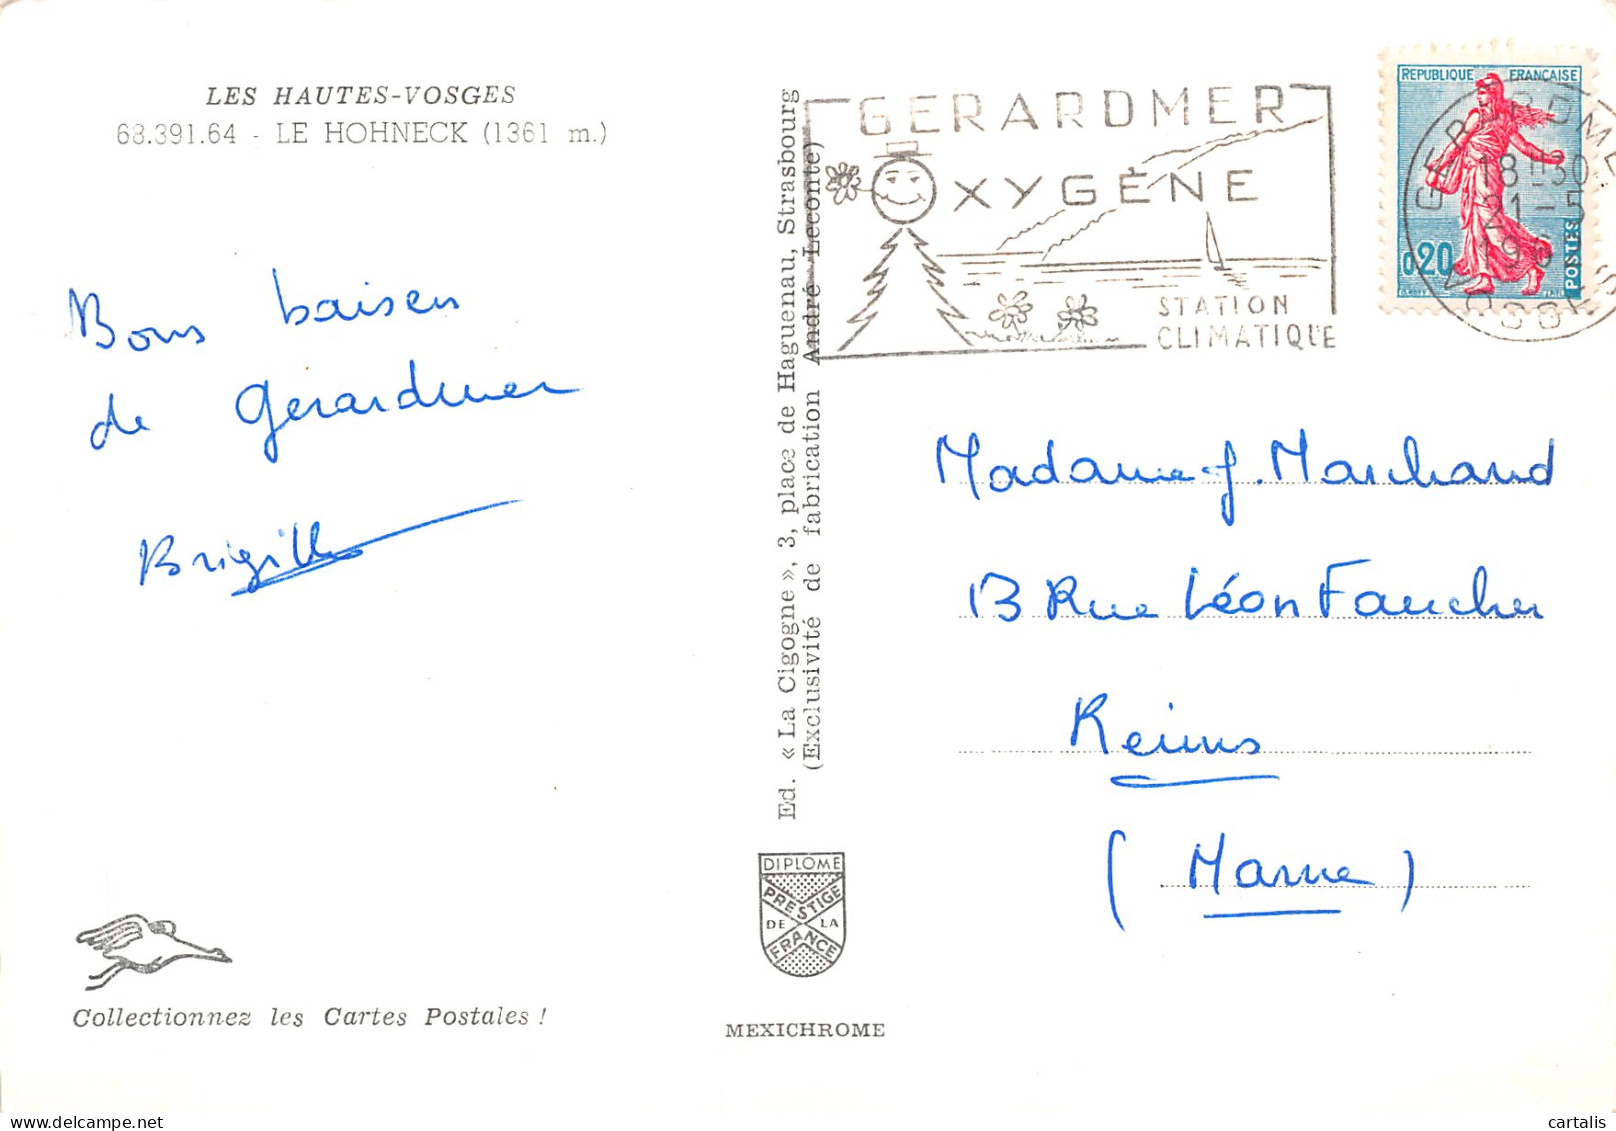 LES HAUTES-VOSGES
68.391.64 - LE HOHNECK (1361 m.)
Bons baisers
de Gerardmer
Brigitte
Collectionnez les Cartes Postales !
Ed. « La Cigogne », 3, place de Haguenau, Strasbourg
(Exclusivité de fabrication André Leconte)
DIPLOME
PRESTIGE
DE LA
FRANCE
MEXICHROME
GERARDMER
OXYGÈNE
STATION
CLIMATIQUE
REPUBLIQUE FRANÇAISE
0,20
POSTES
GERARDMER
18H30
21-5
196
VOSGES
Madame J. Marchand
13 Rue Léon Faucher
Reims
(Marne)
cartalis
www.delcampe.net